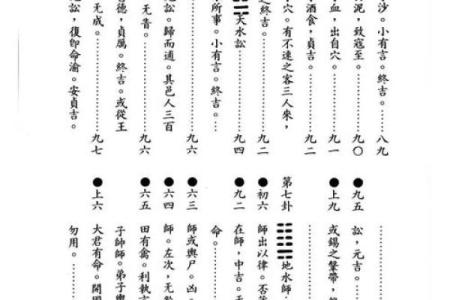 沙。小有言。終吉。……八九
泥，致寇至。……九〇
血，出自穴。……九一
酒食，貞吉。……九二
穴。有不速之客三人來，
之終吉。……九二
天水訟……九四
所事。小有言。終吉。
……九六
訟。歸而逋。其邑人三百
无眚。……九六
德，貞厲。終吉。或從王
无成。……九七
訟，復即命渝。安貞吉。
●九五 訟，元吉。……
●上九 或錫之鞶帶，
第七卦 地水師
●初六 師出以律。否
●九二 在師，中吉。无
命。……
●六三 師或輿尸。凶。
●六四 師。左次，无
●六五 田有禽。利執言
子帥師。弟子輿
●上六 大君有命。開國
勿用。……